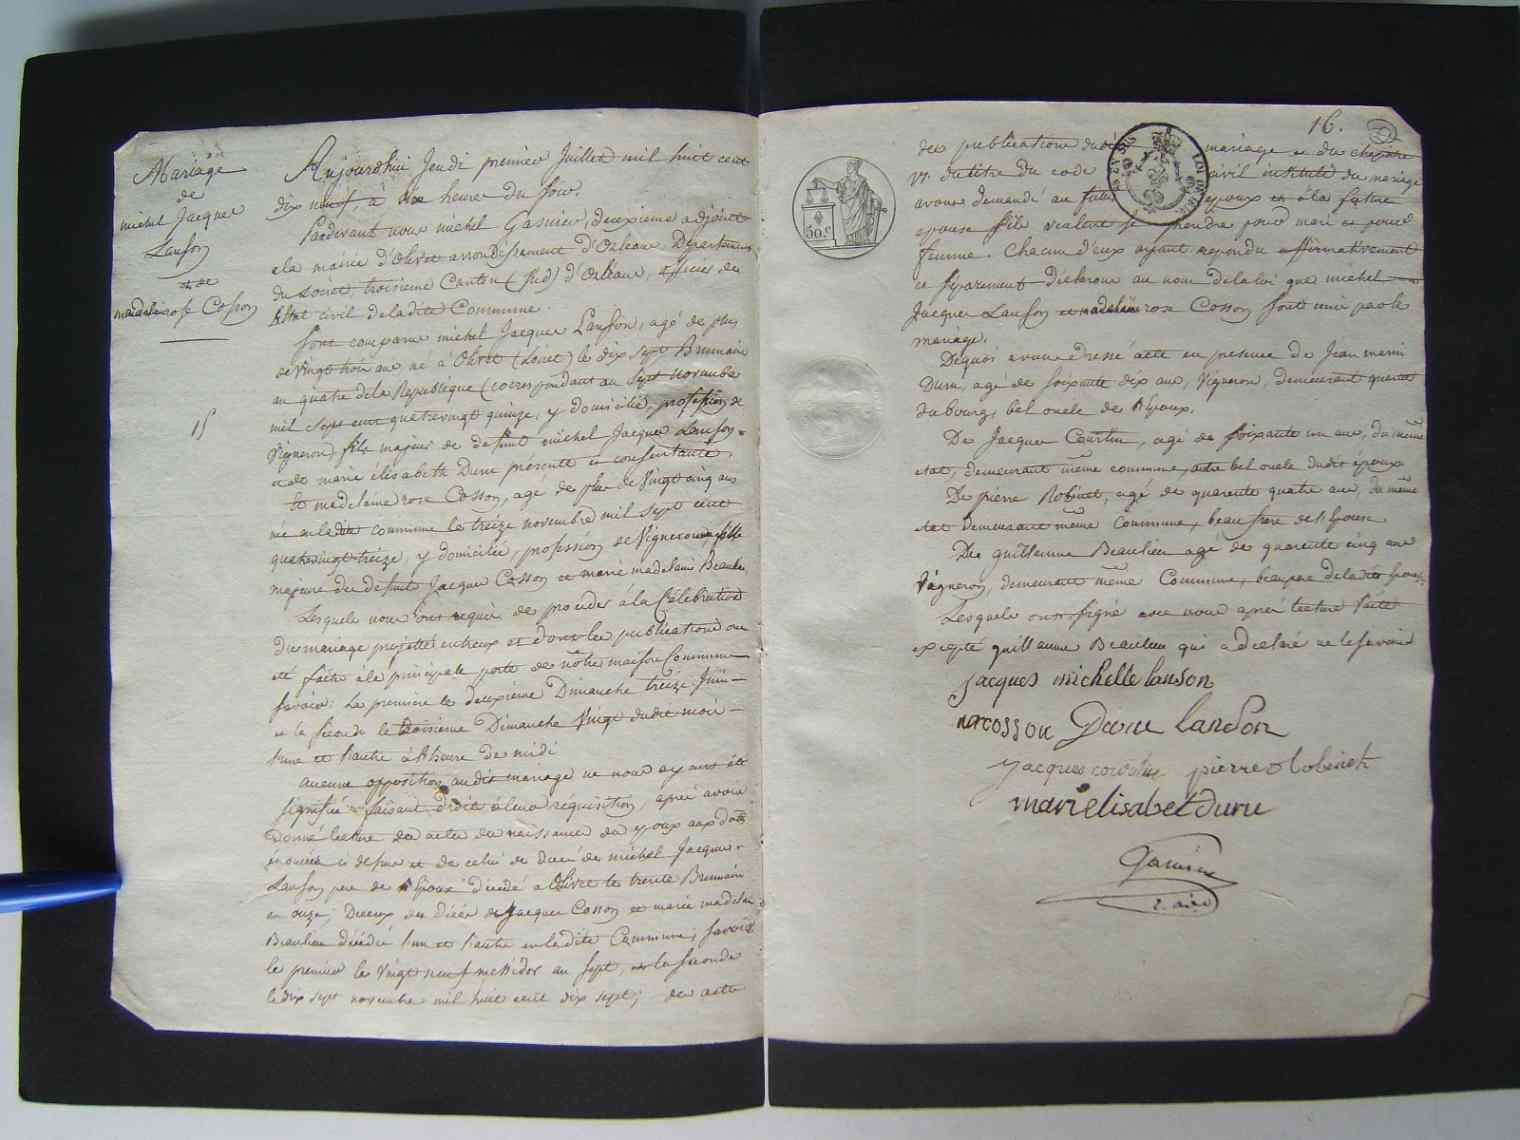 Mariage
de
michel Jacques
Lanson
et de
madelaine rose Cosson
15
Aujourdhui Jeudi premier Juillet mil huit cent
dix neuf, à heure du soir.
Pardevant nous michel Gasnier, deuxieme adjoint
a la mairie d'Olivet arrondissement d'Orleans Departement
du Loiret, troisieme Canton (Sud) d'Orléans, officier de
l'état civil de ladite Commune.
Sont comparu michel Jacques Lanson, agé de plus
de vingt trois ans né à Olivet (Loiret) le dix sept Brumaire
an quatre de la Republique (correspondant au sept novembre
mil sept cent quatrevingt quinze, y domicilié, profession de
Vigneron, fils majeur de defunt michel Jacques Lanson
et de marie élisabeth Duru présente et consentante,
Et madelaine rose Cosson, agé de plus de Vingt cinq ans
née en ladite commune le treize novembre mil sept cent
quatrevingt treize, y domiciliée, profession de Vigneronne, fille
majeure de defunt Jacques Cosson et marie madelaine Beaulieu
Lesquels nous ont requis de proceder à la Célébration
du mariage projetté entreux et dont les publications ont
été faites à la principale porte de notre maison Commune
savoir: La premiere le deuxième Dimanche treize Juin
et la seconde le troisieme Dimanche Vingt dudit mois
l'une et l'autre à l'heure de midi
aucune opposition audit mariage ne nous ayant été
signifiée faisant droit à leur réquisition, après avoir
donné lecture des actes de naissance des époux aux dates
énoncées ci dessus et de celui de décès de michel Jacques
Lanson pere de l'époux décédé a Olivet le trente Brumaire
an onze; Deceux des décès de Jacques Cosson et marie madelaine
Beaulieu décédés l'un et l'autre en ladite Commune; savoir
le premier le vingt neuf messidor an sept, la seconde
le dix sept novembre mil huit cent dix sept; des actes
16.
50.c
des publications dudit mariage et du chapitre
VI. du titre du code civil intitulé du mariage
avons demandé au futur epoux et à la future
epouse s'ils veulent se prendre pour mari et pour
femme. Chacun d'eux ayant repondu affirmativement
et séparement declarons au nom de la loi que michel
Jacques Lanson et madelaine rose Cosson sont unis par le
mariage.
Dequoi avons dressé acte en presence de Jean marin
Duru, agé de soixante dix ans, Vigneron, demeurant quartier
du bourg, bel oncle de l'époux.
De Jacques Courtin, agé de soixante un ans, du même
état, demeurant même commune, autre bel oncle dudit époux
De pierre Robinet, agé de quarente quatre ans, du même
état demeurant même Commune, beau frere de l'épouse
De guillaume Beaulieu agé de quarente cinq ans
Vigneron, demeurant même Commune, de ladite épouse
Lesquels ont signé avec nous apres lecture faite
excepté guillaume Beaulieu qui a déclaré ne le savoir
jacques michelle lanson
mrcosson Duru landon
jacques courtin pierre Robineh
mari elisabet duru
Gasnier